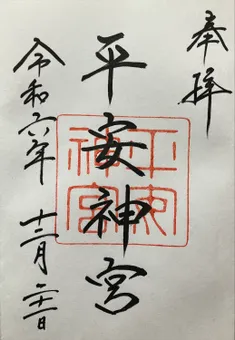 奉拝
平安神宮
平安神宮
令和六年 十二月二十一日